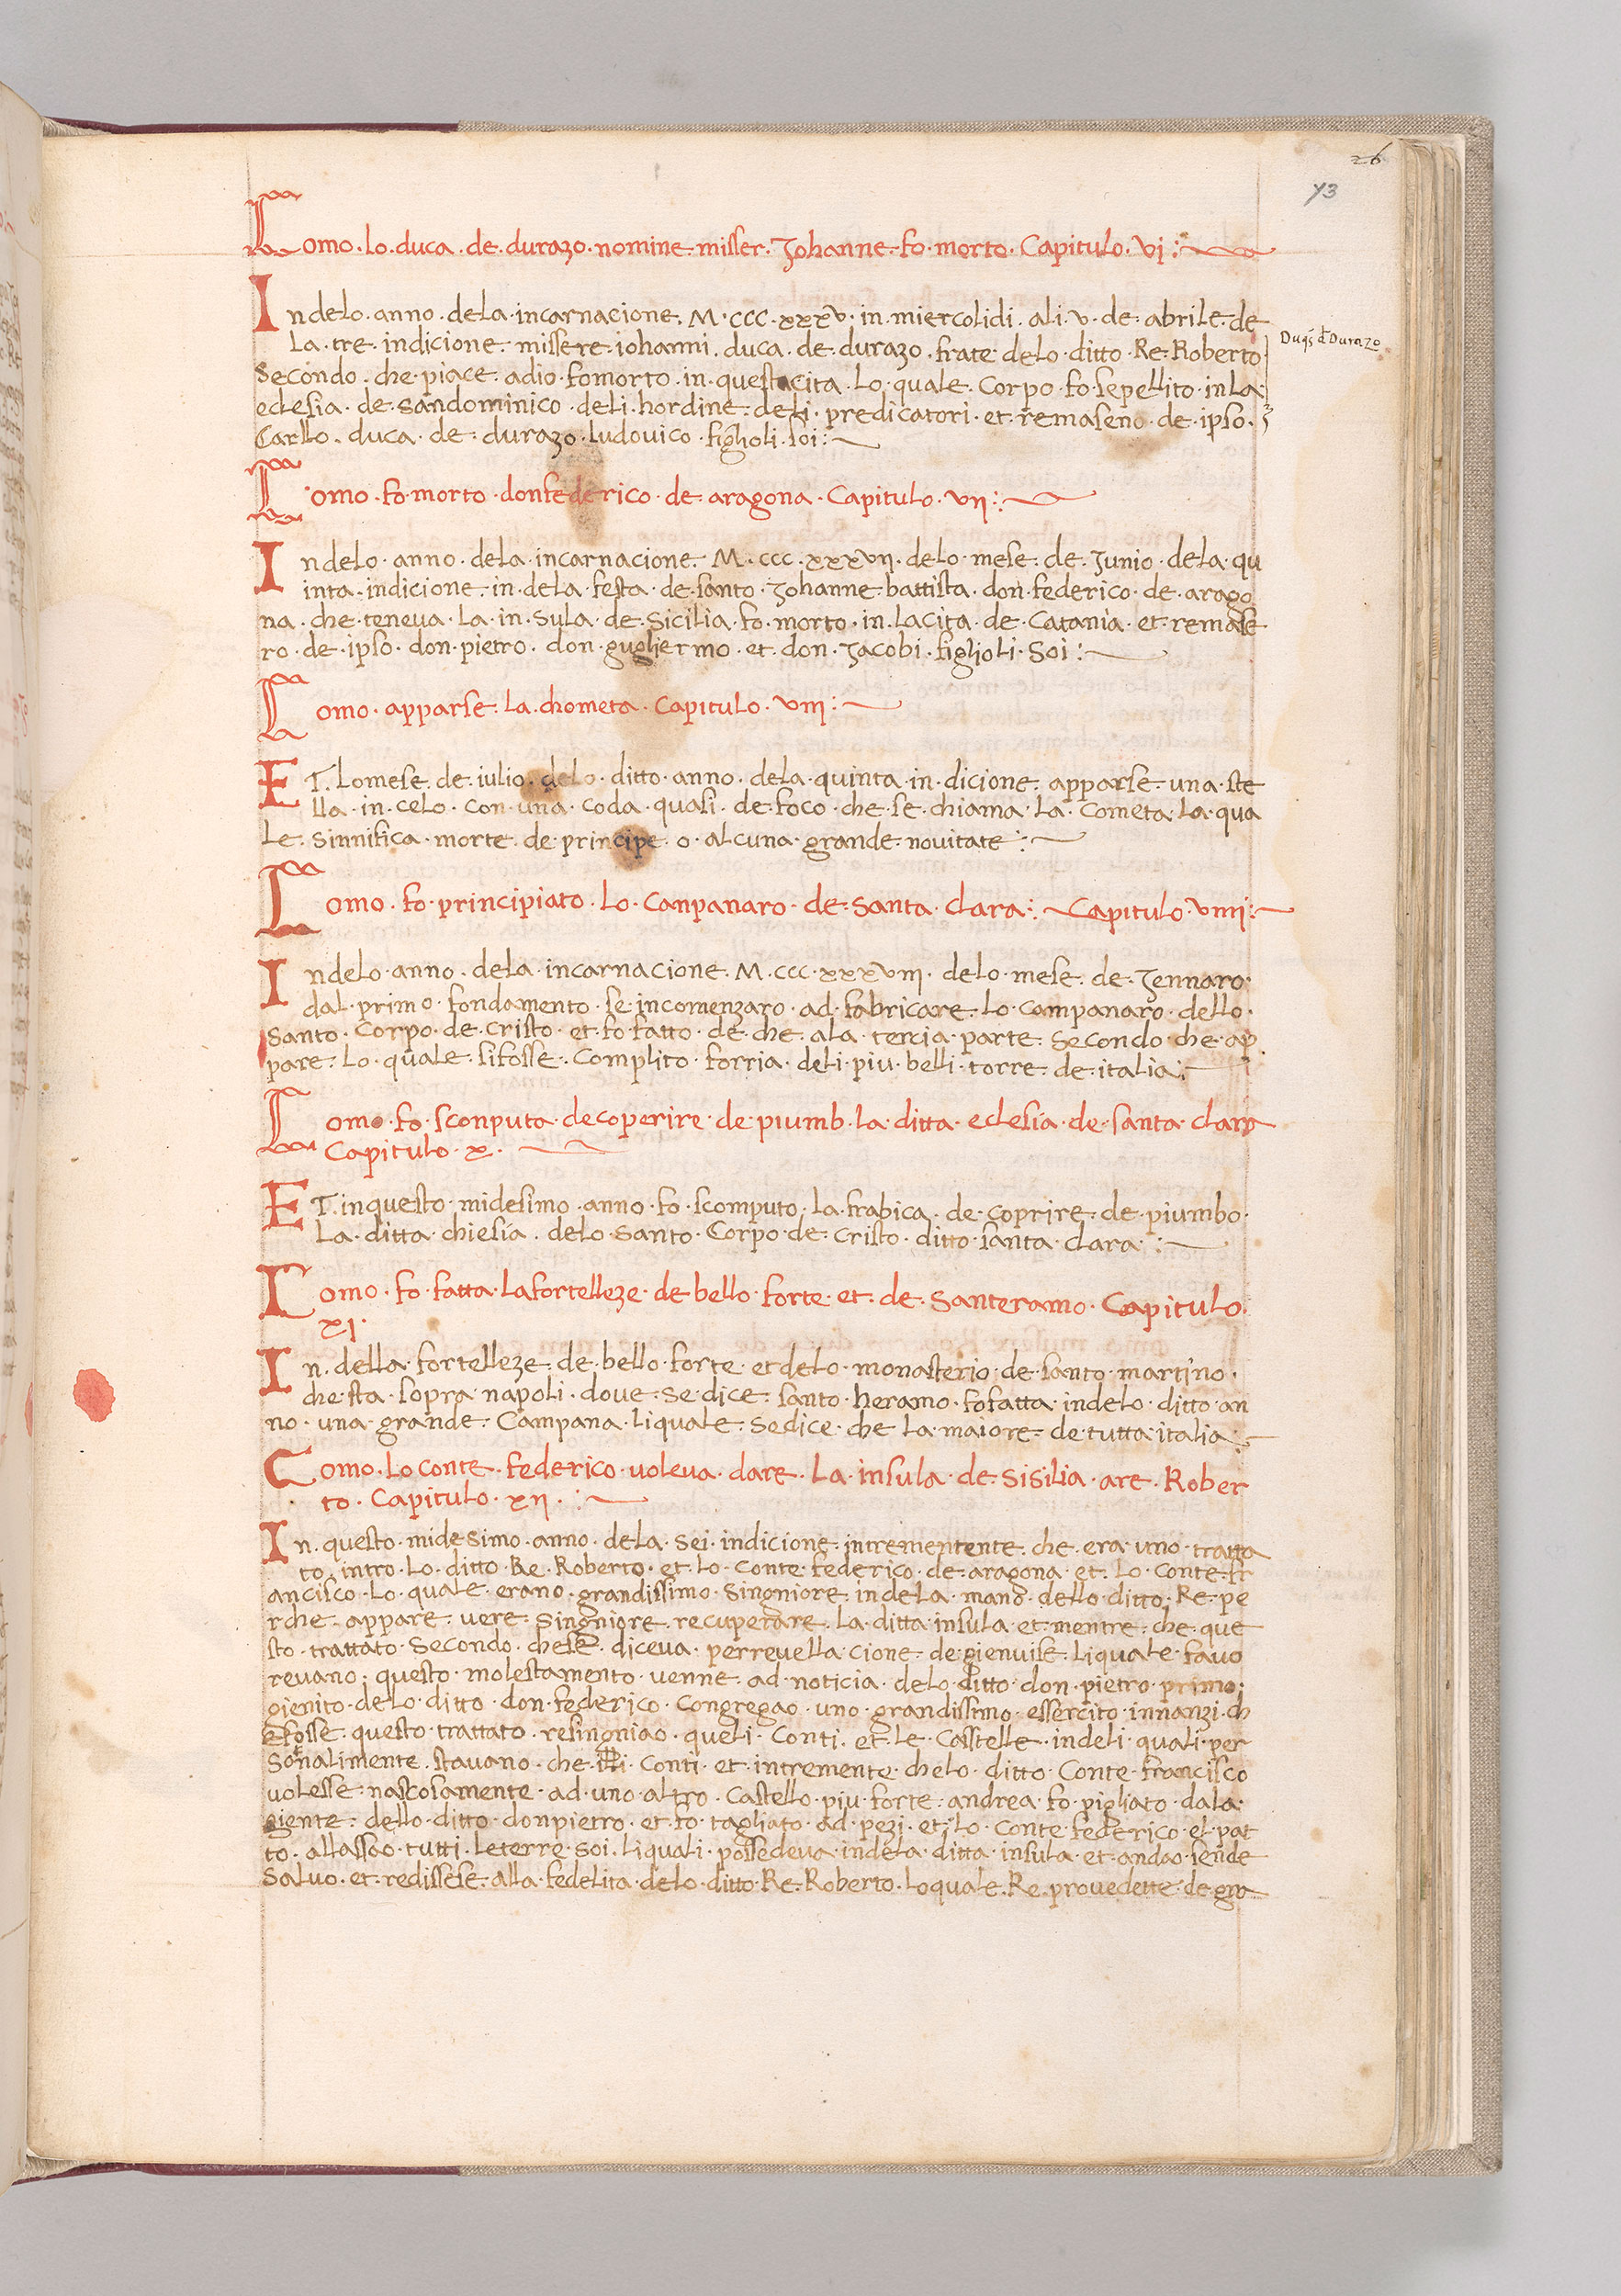 26
73
Como. lo. duca. de. durazo. nomine. misser. Johanne. fo. morto. Capitulo. vi:
Indelo. anno. dela. incarnacione. M. ccc. xxxv. in. miercolidi. ali. v. de. abrile. de
La. tre. indicione. missere. iohanni. duca. de. durazo. frate delo. ditto. Re. Roberto
Duqs d Durazo
Secondo. che. piace. adio. fomorto. in. questa cita. lo. quale. Corpo. fo. sepellito. in La.
eclesia. de. sandominico. deli. hordine. deli. predicatori. et. remaseno. de. ipso.
Carllo. duca. de. durazo. ludovico. figholi. soi:
Como. fo. morto. donfederico. de. aragona. Capitulo. vii:
Indelo. anno. dela. incarnacione. M. ccc. xxxvii. delo. mese. de. Junio. dela. qu
inta. indicione. in. dela. festa. de. santo. Johanne. battista. don. federico. de. arago
na. che. teneva. la. in. sula. de. Sicilia. fo. morto. in. Lacita. de. Catania. et. remase
ro. de. ipso. don. pietro. don. gugliermo. et. don. Jacobi. figlioli. Soi:
Como. apparse. la. chometa. Capitulo. viii:
ET. lomese. de. iulio. delo. ditto. anno. dela. quinta. in. dicione. apparse. una. ste
lla. in. celo. con. una. coda. quasi. de. foco. che. se. chiama. la. Cometa. la. qua
le. sinnifica. morte. de. principe. o. alcuna. grande. novitate:
Como. fo. principiato. lo. Canpanaro. de. santa. clara: Capitulo. viiii:
Indelo. anno. dela. incarnacione. M. ccc. xxxviii. delo. mese. de. Jennaro.
dal. primo. fondamento. se. incomenzaro. ad. fabricare. lo. campanaro. dello.
santo. Corpo. de. cristo. et. fo. fatto. de. che. ala. tercia. parte. Secondo. che. ap
pare. lo. quale. sifosse. complito. forria. deli. piu. belli. torre. de. italia:
Como. fo. sconputa. decoperire. de. piumb. la. ditta. eclesia. de. santa. clara
Capitulo. x.
ET. inquesto. midesimo. anno. fo. scomputo. la. frabica. de. coprire. de. piumbo.
La. ditta. chiesia. delo. santo. Corpo. de. cristo. ditto. santa. clara:
Como. fo. fatta. Lafortelleze. de bello. forte. et. de. santeramo. Capitulo.
xi.
In. della. fortelleze. de. bello. forte. et delo. monasterio. de. santo. martino.
che. sta. sopra. napoli. dove. se. dice. santo. heramo. fo fatta. indelo. ditto. an
no. una. grande. Campana. liquale. se dice. che. la. maiore. de. tutta. italia:
Como. Lo conte. federico. voleva. dare. La. insula. de. Sisilia. are. Rober
to. Capitulo. xii.:
In. questo. midesimo. anno. dela. sei. indicione. intrementente. che. era. uno. tratta
to. intro. Lo. ditto. Re. Roberto. et. lo. conte. federico. de. aragona. et. Lo. Conte. fr
ancisco. lo. quale. erano. grandissimo. Singniore. indela. mano. dello. ditto. Re. pe
rche. appare. vere. Singniore. recuperare. La. ditta. insula. et. mentre. che. que
sto. trattato. Secondo. chese. diceva. perrevella cione. de. gienuise. liquale. favo
revano. questo. molestamento. venne. ad. noticia. delo. ditto. don. pietro. primo.
gienito. delo. ditto. don. federico. Congregao. uno. grandissimo. essercito. innanzi. ch
e fosse. questo. trattato. resingniao. queli. Conti. et. le. Casstelle. indeli. quali. per
sonalimente. stavano. che. Conti. et. intremente. chelo. ditto. Conte. francisco
volesse. nascosamente. ad. uno. altro. Castello. piu. forte. andrea. fo. pigliato. dala.
giente. dello. ditto. donpietro. et. fo. tagliato. ad. pezi. et. lo. conte. federico. el. pat
to. allassao. tutti. leterre. soi. liquali. possedeva. indela. ditta. insula. et. andao. sende
Salvo. et. redissese. alla. fedelita. delo. ditto. Re. Roberto. loquale. Re. provedette. de. gra